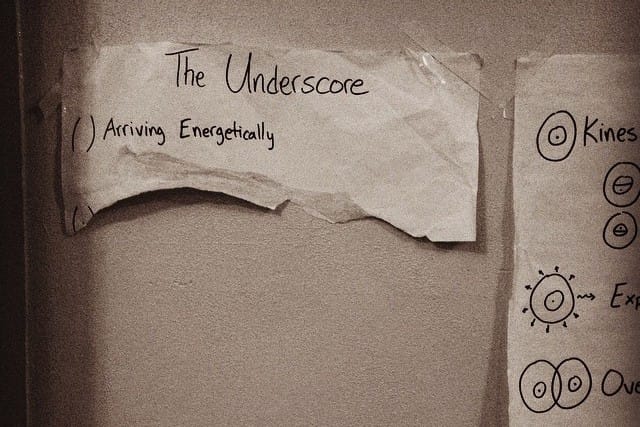 The Underscore
( ) Arriving Energetically
Kines
Exp
Ove